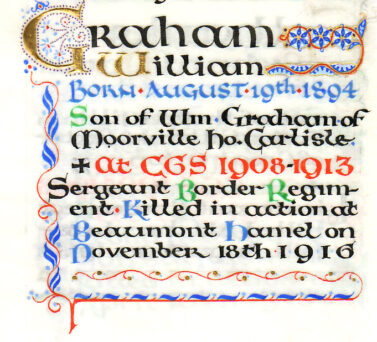 Graham
William
BORN·AUGUST·19th·1894
Son of Wm·Graham of
Moorville Ho. Carlisle.
+ At CGS 1908-1913
Sergeant Border Regim-
ent·Killed in action at
Beaumont Hamel on
November 18th·1916